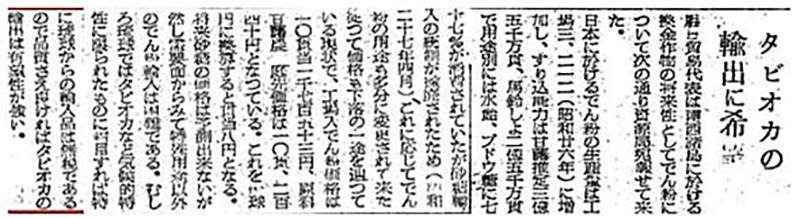 タピオカの
輸出に希望
駐日貿易代表は南西諸島に於ける
換金作物の将来性としてでん粉に
ついて次の通り資源局宛報せて来
た。
日本に於けるでん粉の生産高は工
場三、二二二（昭和廿六年）に増
加し、すり込能力は甘藷推定三億
五千万貫、馬鈴しよ二億五千万貫
で用途別には水飴、ブドウ糖に七
十七％が消費されていたが砂糖輸
入の統制が
二十七年四月）、これに応じてでん
粉の用途も多分に変更されて来た
従つて価格も下落の一途を辿つて
いる現状で、工場入でん粉価格は
百
〇貫当二千七百五十三円、原料
四十円となつている。これを琉球
円に換算すると百廿八円となる。
将来砂糖の価格は予測出来ないが
然し需要面からみて特殊用途以外
のでん粉輸入は困難である。むし
ろ琉球ではタピオカなど気候的特
性に限られたものに着目すれば特
に琉球からの輸入品は無税である
ので品質さえ良ければタピオカの
輸出は有望性が強い。